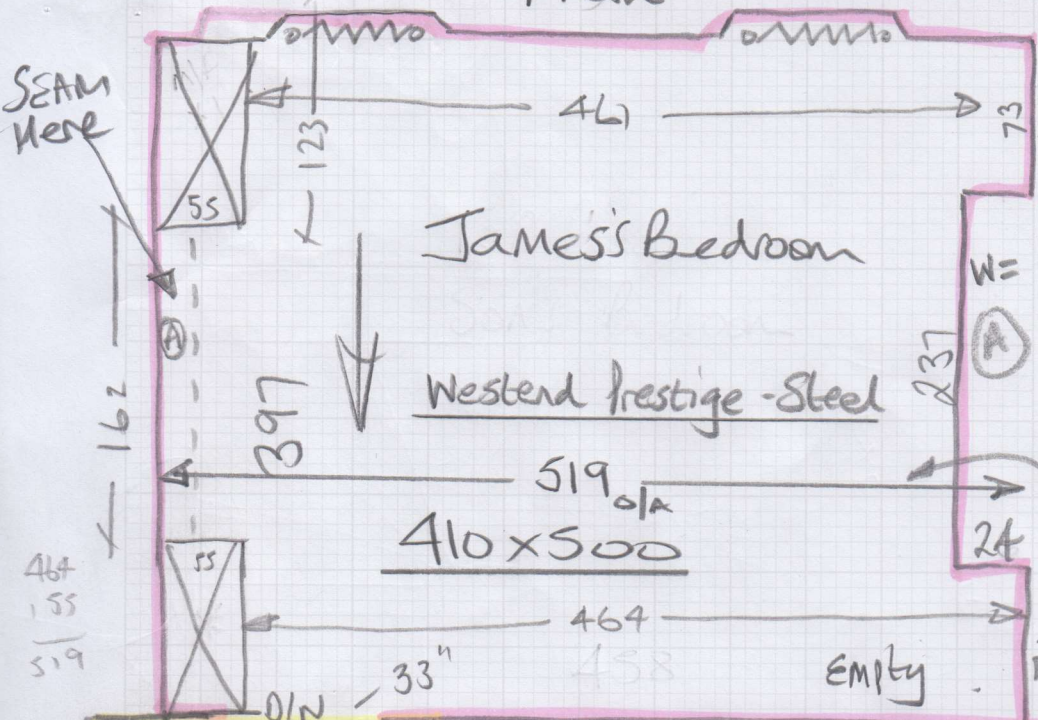 SEAM
Here
461
73
123
55
James's Bedroom
W=
A
A
237
162
397
Westend Prestige - Steel
519 o/A
24
410 x 500
55
464
55
519
464
458
33"
Empty
D/N